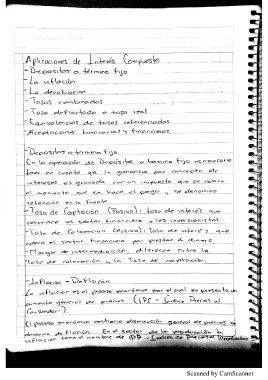 Aplicaciones de Interés Compuesto
- Depósitos a término fijo
- La inflación
- La devaluación
- Tasas combinadas
- Tasa deflactada o tasa real
- Equivalencias de tasas referenciadas
- Aceptaciones bancarias y financieras.
- Depósitos a termino fijo
En la operación de Depósitos a termino fijo es necesario
tener en cuenta que la ganancia por concepto de
intereses es gravada con un impuesto que se
al momento que se hace el pago, y se denomina
retención en la fuente.
- Tasa de Captación (Pasiva): tasa de interés que
reconoce el sector financiero a los inversionistas.
- Tasa de Colocación (Activa): Tasa de interés que
cobra el sector financiero por prestar el dinero.
- Margen de intermediación, diferencia entre la
Tasa de colocación y la Tasa de captación.
- Inflación - Deflación
La inflación es el proceso económico por el cual se presenta un
aumento general de precios (IPC - Índice Precios al
Consumidor).
El proceso económico contrario disminución general de precios se
denomina deflación. En el sector de la producción la
inflación toma el nombre de IPP - Indice de Precios Productor
Scanned by CamScanner